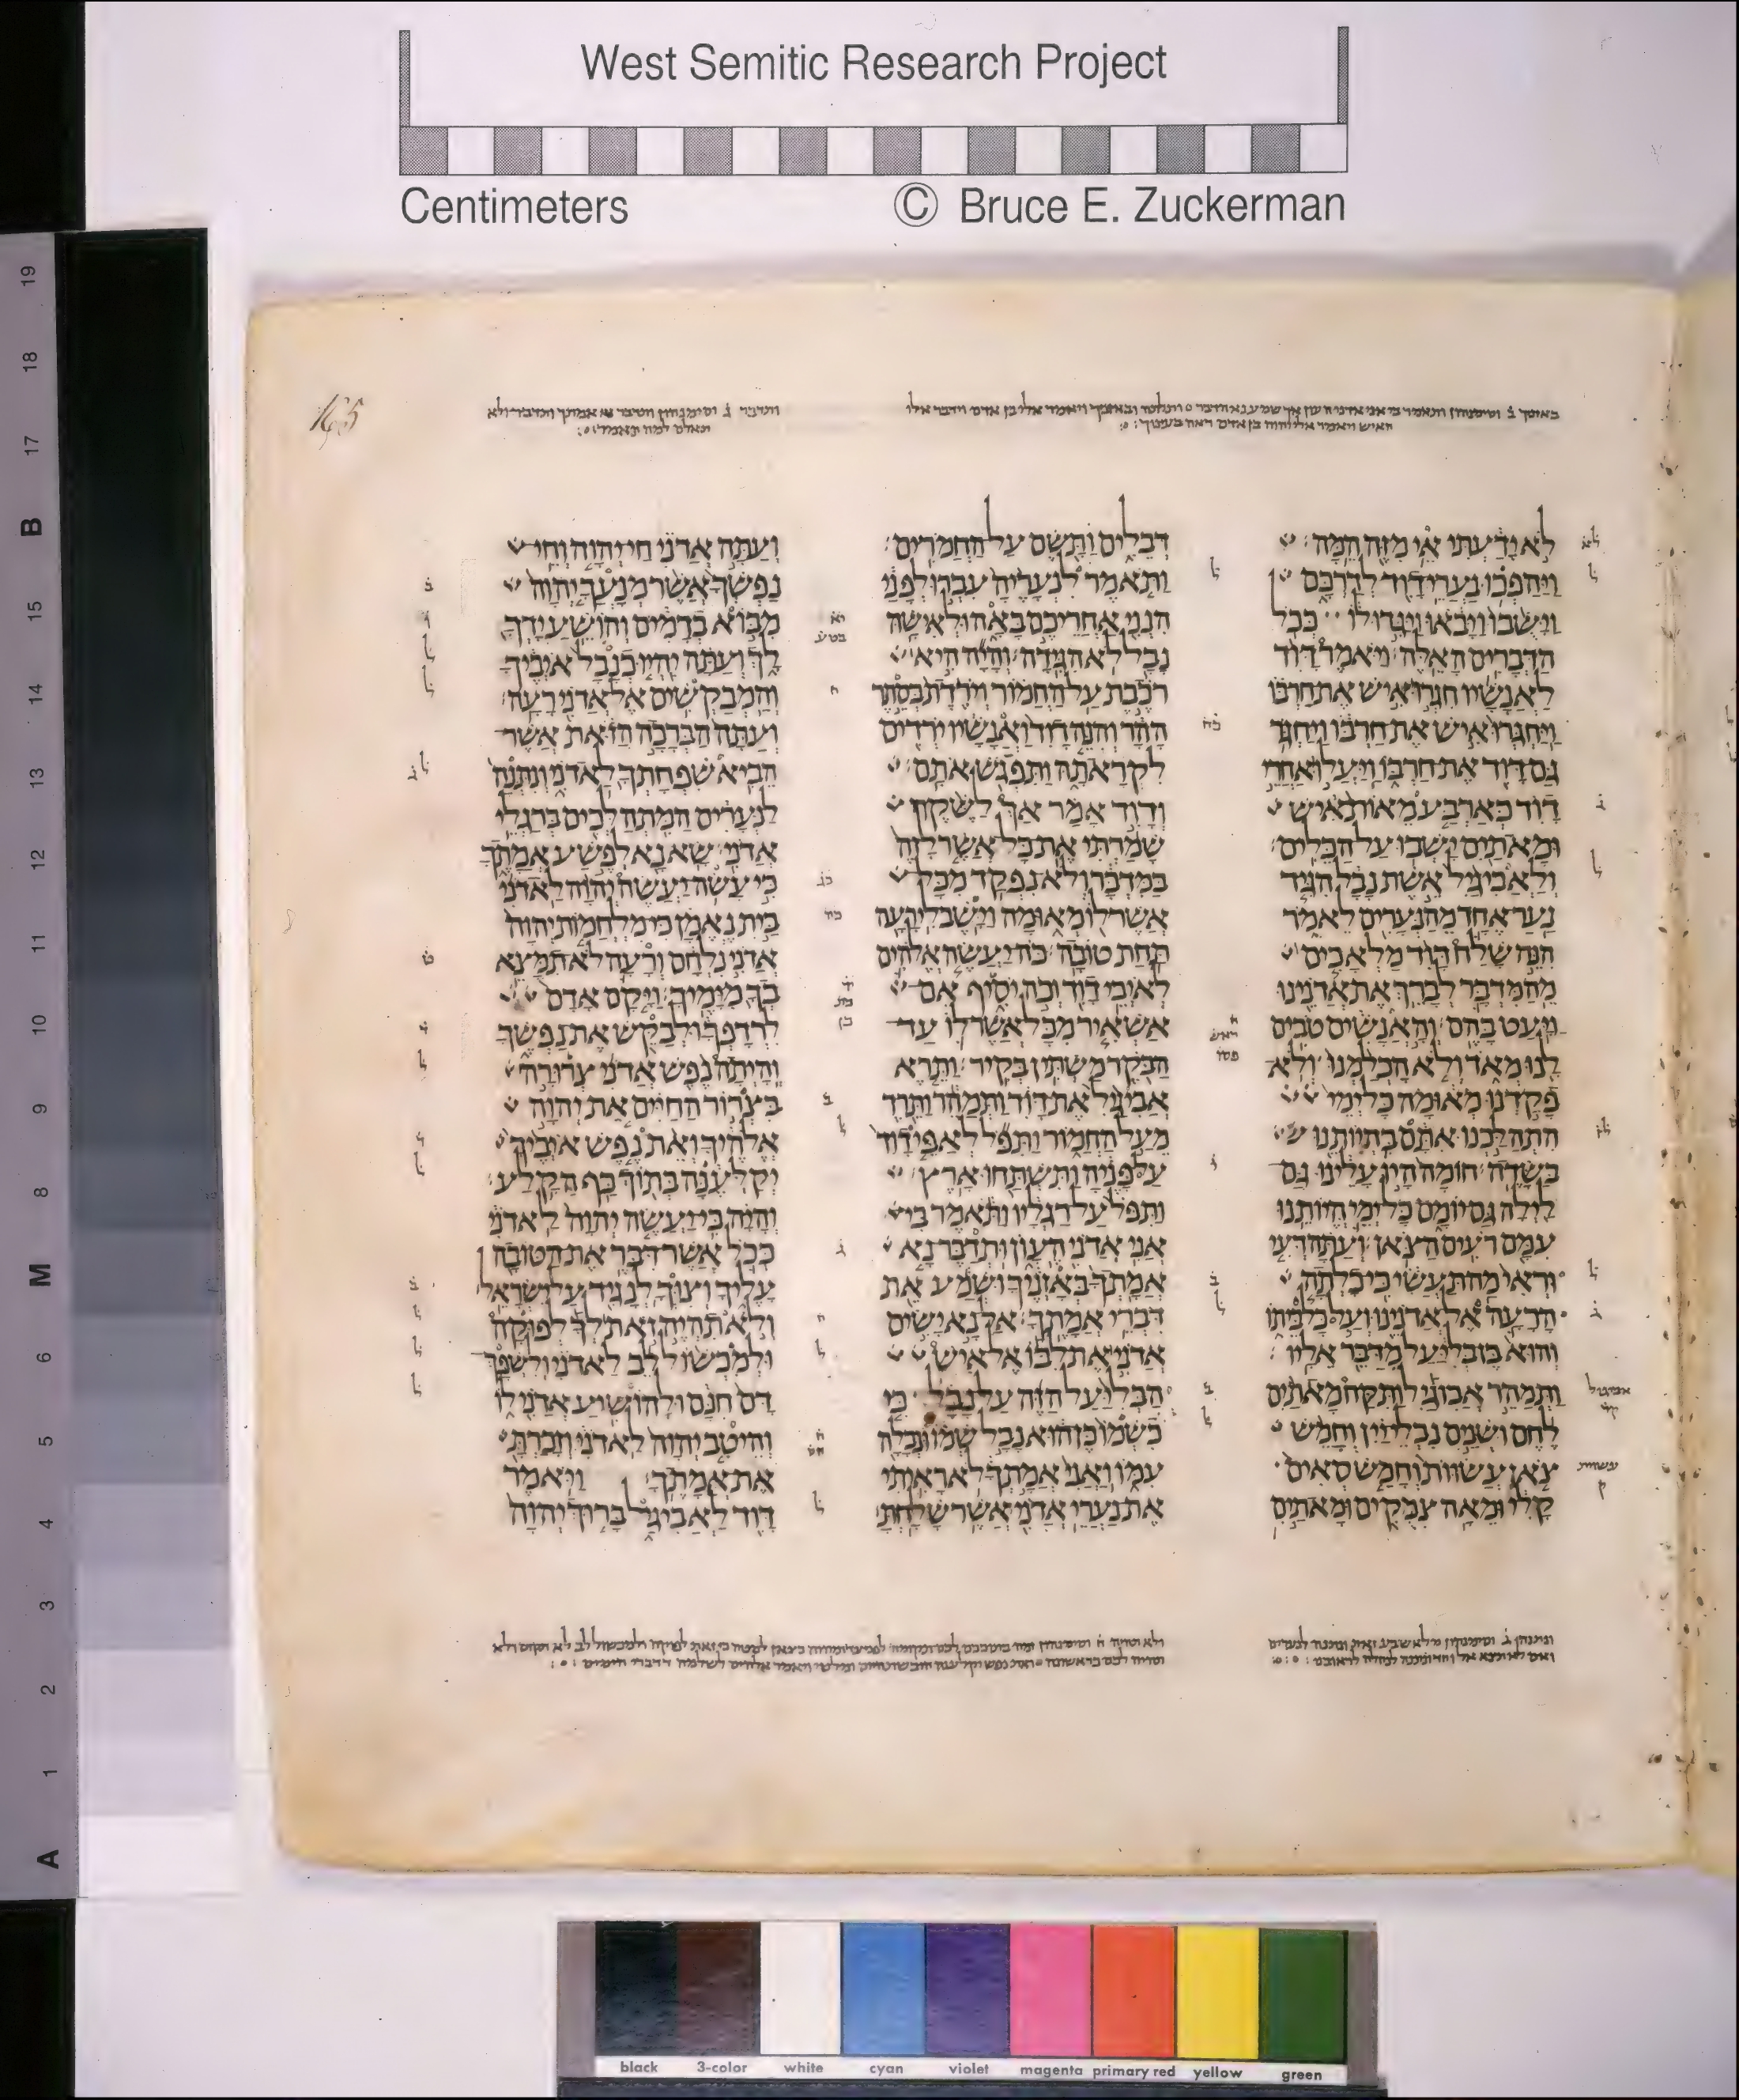 West Semitic Research Project
Centimeters © Bruce E. Zuckerman
165
לֹא יָדַעְתִּי אֵי מִזֶּה הֵמָּה׃
וַיַּהַפְכוּ נַעֲרֵי דָוִד לְדַרְכָּם
וַיָּשֻׁבוּ וַיָּבֹאוּ וַיַּגִּדוּ לוֹ כְּכֹל
הַדְּבָרִים הָאֵלֶּה׃ וַיֹּאמֶר דָּוִד
לַאֲנָשָׁיו חִגְרוּ אִישׁ אֶת חַרְבּוֹ
וַיַּחְגְּרוּ אִישׁ אֶת חַרְבּוֹ וַיַּחְגֹּר
גַּם דָּוִד אֶת חַרְבּוֹ וַיַּעֲלוּ אַחֲרֵי
דָוִד כְּאַרְבַּע מֵאוֹת אִישׁ
וּמָאתַיִם יָשְׁבוּ עַל הַכֵּלִים׃
וְלַאֲבִיגַיִל אֵשֶׁת נָבָל הִגִּיד
נַעַר אֶחָד מֵהַנְּעָרִים לֵאמֹר
הִנֵּה שָׁלַח דָּוִד מַלְאָכִים
מֵהַמִּדְבָּר לְבָרֵךְ אֶת אֲדֹנֵינוּ
וַיָּעַט בָּהֶם׃ וְהָאֲנָשִׁים טֹבִים
לָנוּ מְאֹד וְלֹא הָכְלַמְנוּ וְלֹא
פָקַדְנוּ מְאוּמָה כָּל יְמֵי
הִתְהַלַּכְנוּ אִתָּם בִּהְיוֹתֵנוּ
בַּשָּׂדֶה׃ חוֹמָה הָיוּ עָלֵינוּ גַּם
לַיְלָה גַּם יוֹמָם כָּל יְמֵי הֱיוֹתֵנוּ
עִמָּם רֹעִים הַצֹּאן׃ וְעַתָּה דְּעִי
וּרְאִי מַה תַּעֲשִׂי כִּי כָלְתָה
הָרָעָה אֶל אֲדֹנֵינוּ וְעַל כָּל בֵּיתוֹ
וְהוּא בֶּן בְּלִיַּעַל מִדַּבֵּר אֵלָיו׃
וַתְּמַהֵר אֲבִוגַיִל וַתִּקַּח מָאתַיִם
לֶחֶם וּשְׁנַיִם נִבְלֵי יַיִן וְחָמֵשׁ
צֹאן עֲשׂוּוֹת וְחָמֵשׁ סְאִים
קָלִי וּמֵאָה צִמֻּקִים וּמָאתַיִם
דְּבֵלִים וַתָּשֶׂם עַל הַחֲמֹרִים׃
וַתֹּאמֶר לִנְעָרֶיהָ עִבְרוּ לְפָנַי
הִנְנִי אַחֲרֵיכֶם בָּאָה וּלְאִישָׁהּ
נָבָל לֹא הִגִּידָה׃ וְהָיָה הִיא
רֹכֶבֶת עַל הַחֲמוֹר וְיֹרֶדֶת בְּסֵתֶר
הָהָר וְהִנֵּה דָוִד וַאֲנָשָׁיו יֹרְדִים
לִקְרָאתָהּ וַתִּפְגֹּשׁ אֹתָם׃
וְדָוִד אָמַר אַךְ לַשֶּׁקֶר
שָׁמַרְתִּי אֶת כָּל אֲשֶׁר לָזֶה
בַּמִּדְבָּר וְלֹא נִפְקַד מִכָּל
אֲשֶׁר לוֹ מְאוּמָה וַיָּשֶׁב לִי רָעָה
תַּחַת טוֹבָה׃ כֹּה יַעֲשֶׂה אֱלֹהִים
לְאֹיְבֵי דָוִד וְכֹה יֹסִיף אִם
אַשְׁאִיר מִכָּל אֲשֶׁר לוֹ עַד
הַבֹּקֶר מַשְׁתִּין בְּקִיר׃ וַתֵּרֶא
אֲבִיגַיִל אֶת דָּוִד וַתְּמַהֵר וַתֵּרֶד
מֵעַל הַחֲמוֹר וַתִּפֹּל לְאַפֵּי דָוִד
עַל פָּנֶיהָ וַתִּשְׁתַּחוּ אָרֶץ׃
וַתִּפֹּל עַל רַגְלָיו וַתֹּאמֶר בִּי
אֲנִי אֲדֹנִי הֶעָוֹן וּתְדַבֶּר נָא
אֲמָתְךָ בְּאָזְנֶיךָ וּשְׁמַע אֵת
דִּבְרֵי אֲמָתֶךָ׃ אַל נָא יָשִׂים
אֲדֹנִי אֶת לִבּוֹ אֶל אִישׁ
הַבְּלִיַּעַל הַזֶּה עַל נָבָל כִּי
כִשְׁמוֹ כֶּן הוּא נָבָל שְׁמוֹ וּנְבָלָה
עִמּוֹ וַאֲנִי אֲמָתְךָ לֹא רָאִיתִי
אֶת נַעֲרֵי אֲדֹנִי אֲשֶׁר שָׁלָחְתָּ׃
וְעַתָּה אֲדֹנִי חַי יְהוָה וְחֵי
נַפְשְׁךָ אֲשֶׁר מְנָעֲךָ יְהוָה
מִבּוֹא בְדָמִים וְהוֹשֵׁעַ יָדְךָ
לָךְ וְעַתָּה יִהְיוּ כְנָבָל אֹיְבֶיךָ
וְהַמְבַקְשִׁים אֶל אֲדֹנִי רָעָה׃
וְעַתָּה הַבְּרָכָה הַזֹּאת אֲשֶׁר
הֵבִיא שִׁפְחָתְךָ לַאדֹנִי וְנִתְּנָה
לַנְּעָרִים הַמִּתְהַלְּכִים בְּרַגְלֵי
אֲדֹנִי׃ שָׂא נָא לְפֶשַׁע אֲמָתֶךָ
כִּי עָשֹׂה יַעֲשֶׂה יְהוָה לַאדֹנִי
בַּיִת נֶאֱמָן כִּי מִלְחֲמוֹת יְהוָה
אֲדֹנִי נִלְחָם וְרָעָה לֹא תִמָּצֵא
בְךָ מִיָּמֶיךָ׃ וַיָּקָם אָדָם
לִרְדָפְךָ וּלְבַקֵּשׁ אֶת נַפְשֶׁךָ
וְהָיְתָה נֶפֶשׁ אֲדֹנִי צְרוּרָה
בִּצְרוֹר הַחַיִּים אֵת יְהוָה
אֱלֹהֶיךָ וְאֵת נֶפֶשׁ אֹיְבֶיךָ
יְקַלְּעֶנָּה בְּתוֹךְ כַּף הַקָּלַע׃
וְהָיָה כִּי יַעֲשֶׂה יְהוָה לַאדֹנִי
כְּכֹל אֲשֶׁר דִּבֶּר אֶת הַטּוֹבָה
עָלֶיךָ וְצִוְּךָ לְנָגִיד עַל יִשְׂרָאֵל׃
וְלֹא תִהְיֶה זֹאת לְךָ לְפוּקָה
וּלְמִכְשׁוֹל לֵב לַאדֹנִי וְלִשְׁפָּךְ
דָּם חִנָּם וּלְהוֹשִׁיעַ אֲדֹנִי לוֹ
וְהֵיטִב יְהוָה לַאדֹנִי וְזָכַרְתָּ
אֶת אֲמָתֶךָ׃ וַיֹּאמֶר
דָּוִד לַאֲבִיגַל בָּרוּךְ יְהוָה
19
18
17
B
15
14
13
12
11
10
9
8
M
6
5
4
3
2
1
A
black 3-color white cyan violet magenta primary red yellow green